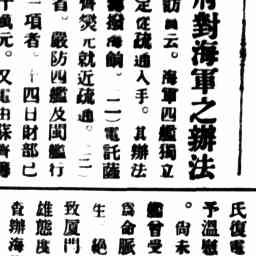 府對海軍之辦法
訪員云。海軍四艦獨立
定從疏通入手。其辦法
籌撥海餉。(二)電託薩
齊燮元就近疏通。(三)
者。嚴防四艦及閩艦行
一項者。十四日財部已
十萬元。又電由蘇齊
氏復電
予溫慰
。尙未
艦曾受
爲命脈
生。絕
致厦門
雄態度
查辦海